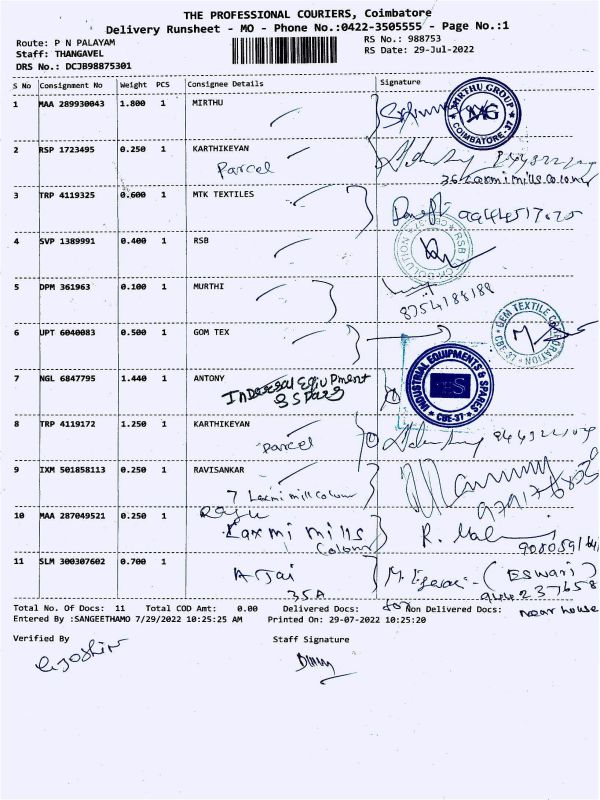 THE PROFESSIONAL COURIERS, Coimbatore
Delivery Runsheet - MO - Phone No.:0422-3505555 - Page No.:1
Route: P N PALAYAM
RS No.: 988753
Staff: THANGAVEL
RS Date: 29-Jul-2022
DRS No.: DCJB98875301
S No Consignment No Weight PCS Consignee Details Signature
1 MAA 289930043 1.800 1 MIRTHU
MIRTHU GROUP MG COIMBATORE-37
2 RSP 1723495 0.250 1 KARTHIKEYAN
Parcel
36 Laxmi mills Colony
3 TRP 4119325 0.600 1 MTK TEXTILES
4 SVP 1389991 0.400 1 RSB
RSB SOLUTION
5 DPM 361963 0.100 1 MURTHI
8754188188
6 UPT 6040083 0.500 1 GOM TEX
GEM TEXTILE CORPORATION CBE-37
7 NGL 6847795 1.440 1 ANTONY
INDUSTRIAL EQUIPMENTS & SPARES CBE-37
8 TRP 4119172 1.250 1 KARTHIKEYAN
Parcel
9 IXM 501858113 0.250 1 RAVISANKAR
7 Laxmi mill colony
10 MAA 287049521 0.250 1 Raju
Laxmi mills
Colony
11 SLM 300307602 0.700 1
35A
(Eswari)
9442237658
near house
Total No. Of Docs: 11 Total COD Amt: 0.00 Delivered Docs: Non Delivered Docs:
Entered By :SANGEETHAMO 7/29/2022 10:25:25 AM Printed On: 29-07-2022 10:25:20
Verified By Staff Signature